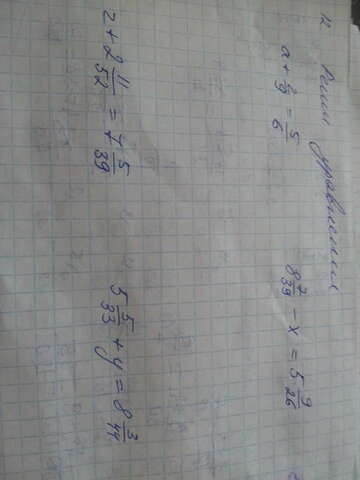 12 Реши уравнения
a + 2/9 = 5/6
8 2/39 - x = 5 9/26
z + 2 11/52 = 7 5/39
5 5/33 + y = 8 3/44